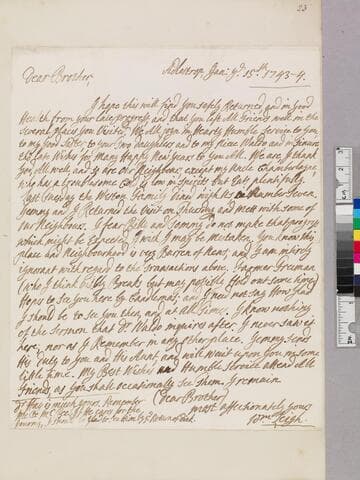 23
Adlestrop Jan: ye. 15th. 1743-4.
Dear Brother,
I hope this will find you safely Returned, and in good
Health from your late progress, and that you left All Friends well in the
Several places you Visited. We All joyn in Hearty Humble Service to you,
to my good Sister, to your two Daughters and to my Niece Waldo and in Sincere
the best Wishes for many Happy New years to you All. We are, I thank
you All well, and so are our Neighbours, except my Uncle Chamberlayne
who has a troublesome Cold, is low in Spirits but Eats plentifully.
Last Sunday the Weston Family dined with us in Number Seven,
Jemmy and I Returned the Visit on Thursday and met with some of
our Neighbours. I fear Bill and Tommy do not make that progress
which might be expected, I wish I may be Mistaken. You know this
place and Neighbourhood is very Barren of News, and I am intirely
ignorant with regard to the Transactions above. Farmer Freeman
(who I think
Breaks but may possibly Hold out some time)
Hopes to See you here by Candlemas, and I need not Say How glad
I should be to See you then, and at All Times. I know nothing
of the Sermon that Dr. Waldo enquires after, I never saw it
here, nor as I Remember in any other place. Jemmy sends
His Duty to you and His Aunt, and will Wait upon you in some
little time. My Best Wishes and Humble Service attend All
Friends as you shall occasionally See them. I remain
(Dear Brother)
most affectionately yours
Wm. Leigh.
is much yours. Remember